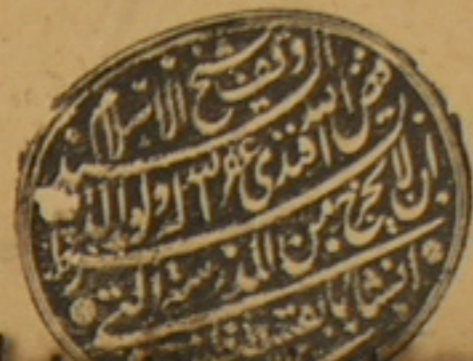 وقف شيخ الاسلام
السيد فيض الله افندى غفر الله له ولوالديه
بشرط ان لا يخرج من المدرسة التى
انشاها بقسطنطينية